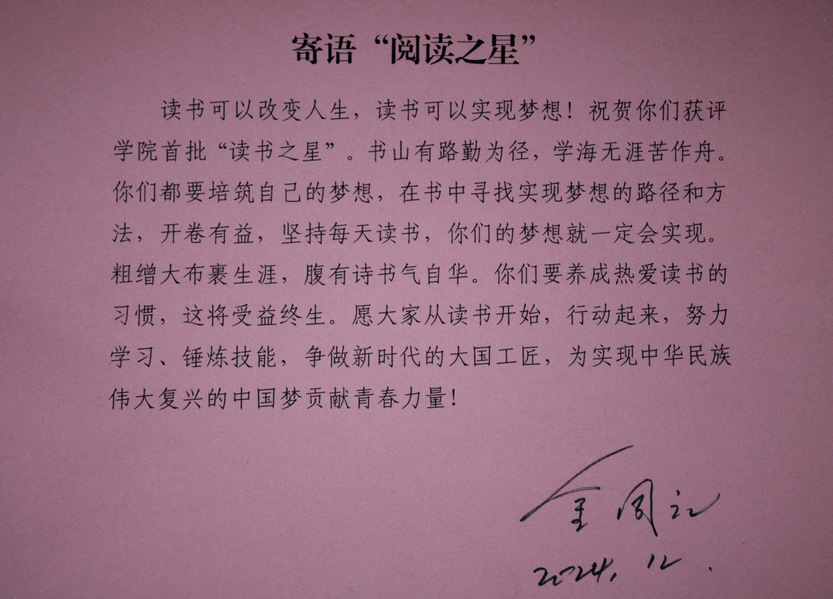 寄语“阅读之星”
读书可以改变人生，读书可以实现梦想！祝贺你们获评
学院首批“读书之星”。书山有路勤为径，学海无涯苦作舟。
你们都要培筑自己的梦想，在书中寻找实现梦想的路径和方
法，开卷有益，坚持每天读书，你们的梦想就一定会实现。
粗缯大布裹生涯，腹有诗书气自华。你们要养成热爱读书的
习惯，这将受益终生。愿大家从读书开始，行动起来，努力
学习、锤炼技能，争做新时代的大国工匠，为实现中华民族
伟大复兴的中国梦贡献青春力量！
2024.12.